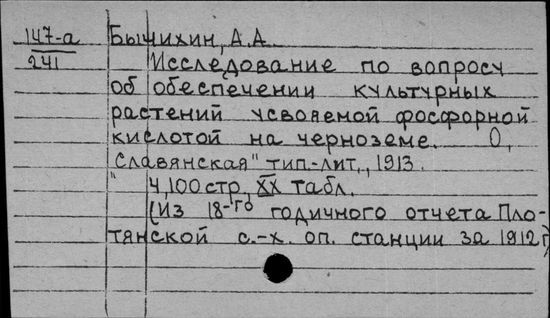 147-а Бычихин, А.А.
241 Исследование по вопросу
об обеспечении культурных
растений усвояемой фосфорной
кислотой на черноземе. О,
„Славянская" тип.-лит., 1913.
4, 100 стр, XX табл.
(Из 18-го годичного отчета Пло-
тянской с.-х. оп. станции за 1912 г)